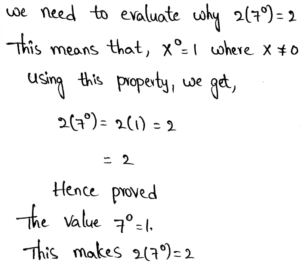 we need to evaluate why 2(7⁰)=2
This means that, x⁰=1 where x ≠ 0
using this property, we get,
2(7⁰) = 2(1) = 2
= 2
Hence proved
The value 7⁰=1.
This makes 2(7⁰)=2